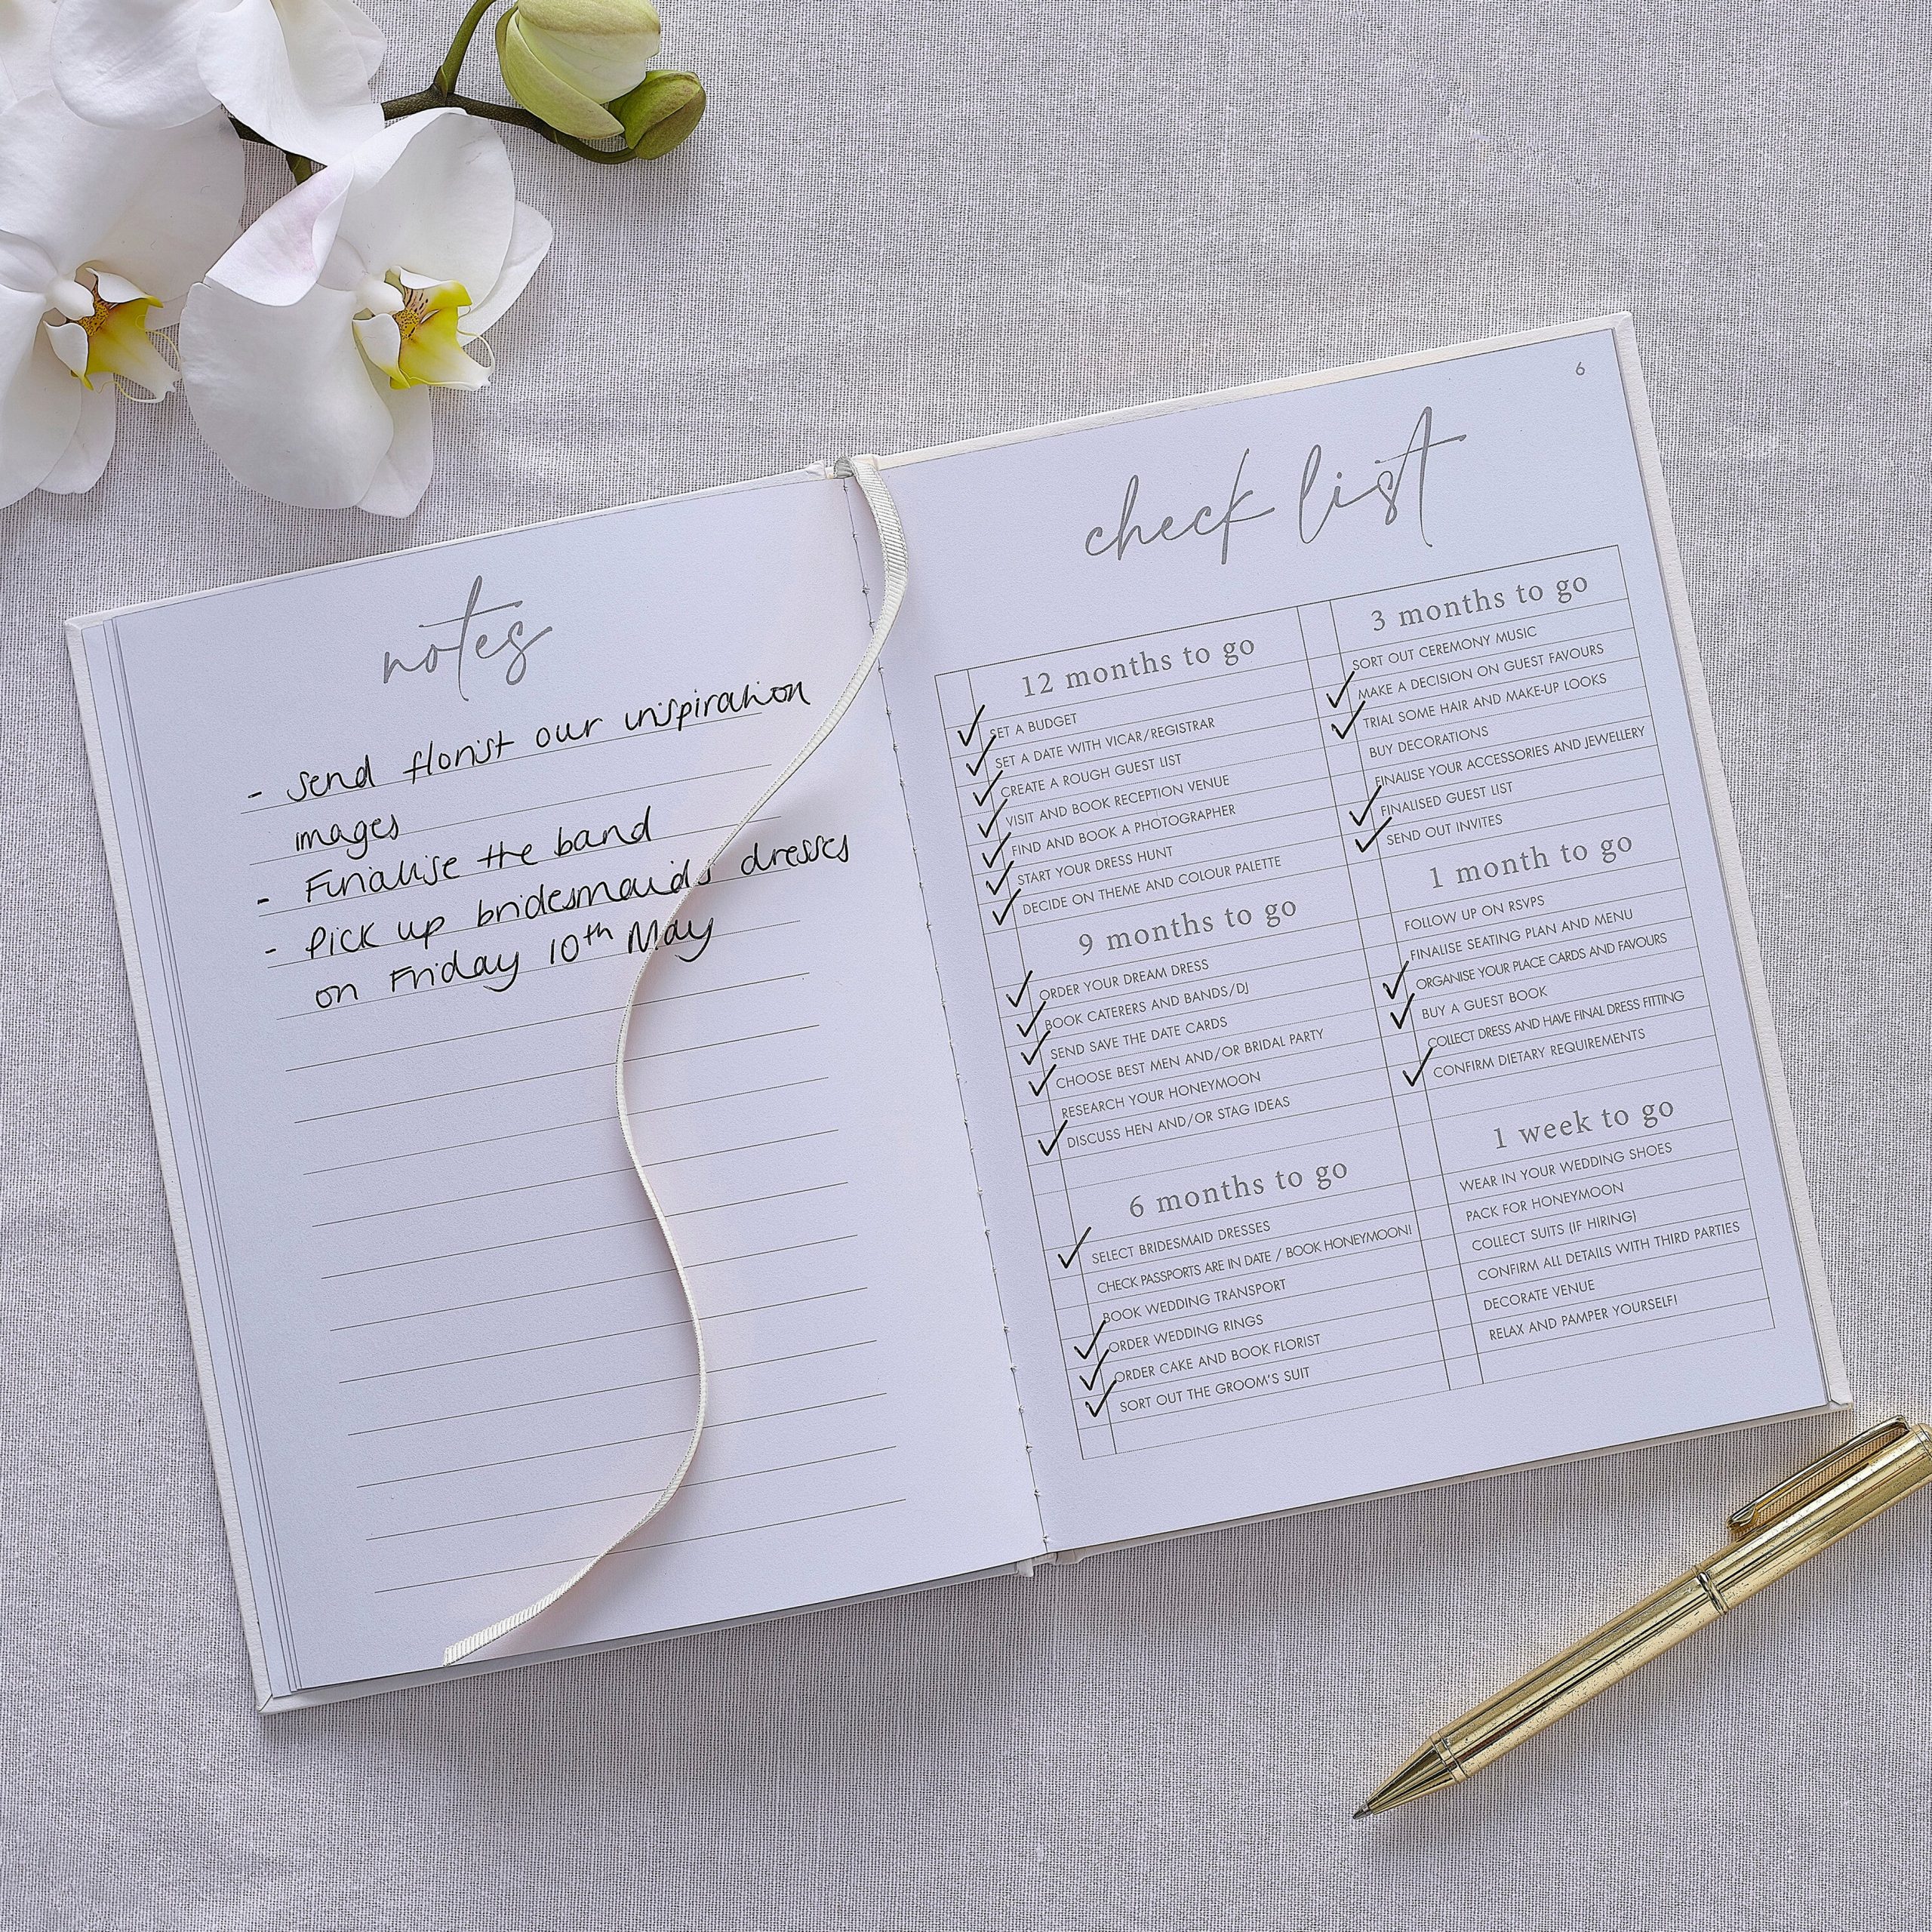 notes
- Send florist our inspiration
images
- Finialise the band
- Pick up bridesmaids dresses
on Friday 10th May
6
check list
12 months to go
✓ SET A BUDGET
✓ SET A DATE WITH VICAR/REGISTRAR
✓ CREATE A ROUGH GUEST LIST
✓ VISIT AND BOOK RECEPTION VENUE
✓ FIND AND BOOK A PHOTOGRAPHER
✓ START YOUR DRESS HUNT
✓ DECIDE ON THEME AND COLOUR PALETTE
9 months to go
✓ ORDER YOUR DREAM DRESS
✓ BOOK CATERERS AND BANDS/DJ
✓ SEND SAVE THE DATE CARDS
✓ CHOOSE BEST MEN AND/OR BRIDAL PARTY
RESEARCH YOUR HONEYMOON
✓ DISCUSS HEN AND/OR STAG IDEAS
6 months to go
✓ SELECT BRIDESMAID DRESSES
CHECK PASSPORTS ARE IN DATE / BOOK HONEYMOON!
BOOK WEDDING TRANSPORT
✓ ORDER WEDDING RINGS
✓ ORDER CAKE AND BOOK FLORIST
✓ SORT OUT THE GROOM'S SUIT
3 months to go
SORT OUT CEREMONY MUSIC
✓ MAKE A DECISION ON GUEST FAVOURS
✓ TRIAL SOME HAIR AND MAKE-UP LOOKS
BUY DECORATIONS
FINALISE YOUR ACCESSORIES AND JEWELLERY
✓ FINALISED GUEST LIST
✓ SEND OUT INVITES
1 month to go
FOLLOW UP ON RSVPS
FINALISE SEATING PLAN AND MENU
✓ ORGANISE YOUR PLACE CARDS AND FAVOURS
✓ BUY A GUEST BOOK
COLLECT DRESS AND HAVE FINAL DRESS FITTING
✓ CONFIRM DIETARY REQUIREMENTS
1 week to go
WEAR IN YOUR WEDDING SHOES
PACK FOR HONEYMOON
COLLECT SUITS (IF HIRING)
CONFIRM ALL DETAILS WITH THIRD PARTIES
DECORATE VENUE
RELAX AND PAMPER YOURSELF!